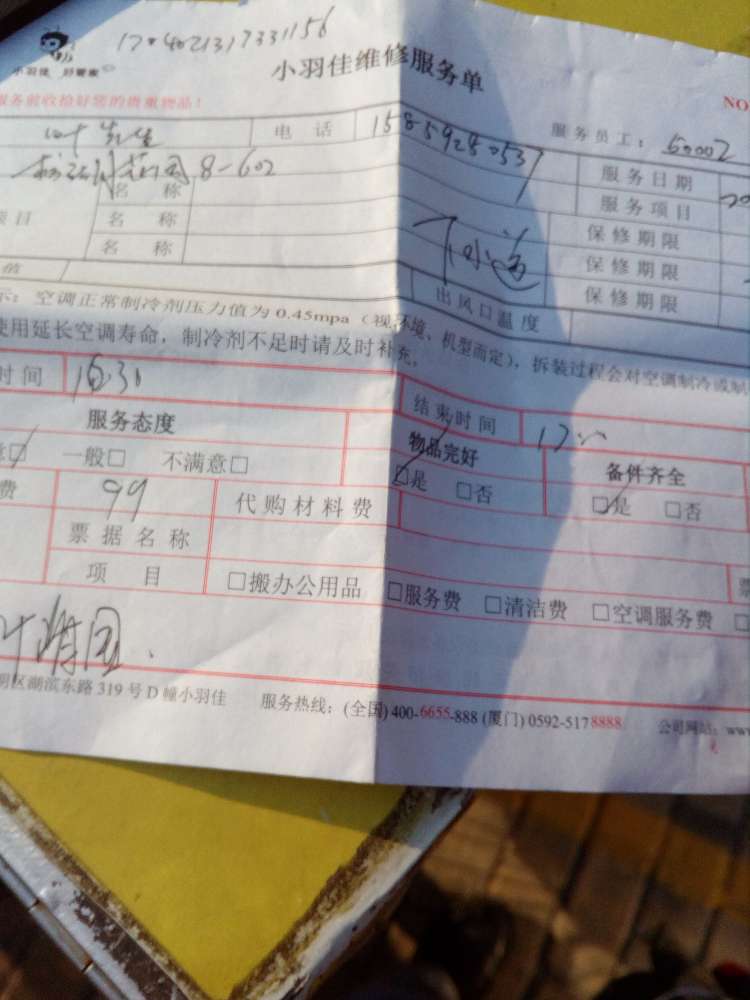 17*4021317331156
小羽佳 好管家
小羽佳维修服务单
NO
服务前收拾好您的贵重物品！
叶先生 电话 15859280537 服务员工： 50002
8-602 服务日期 20
名称 服务项目
项目 名称 下水道 保修期限
名称 保修期限
值 出风口温度 保修期限
示：空调正常制冷剂压力值为 0.45mpa（视环境、机型而定），拆装过程会对空调制冷或制
使用延长空调寿命，制冷剂不足时请及时补充。
时间 16:30 结束时间 17:00
服务态度 物品完好 备件齐全
意☑ 一般□ 不满意□ ☑是 □否 ☑是 □否
费 99 代购材料费
票据名称
项目 □搬办公用品 □服务费 □清洁费 □空调服务费
明区湖滨东路 319 号 D 幢小羽佳 服务热线：(全国) 400-6655-888 (厦门) 0592-5178888 公司网站：www